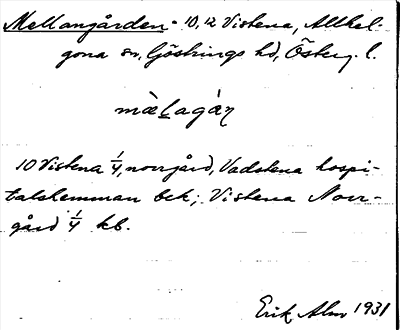 Mellangården - 10, 12 Vistena, Allhel-
gona sn, Göstrings hd, Österg. l.
mæ̀lagàɳ
10 Vistena 1/4, norrgård, Vadstena hospi-
talshemman bek; Vistena Norr-
gård 1/4 kb.
Erik Alm 1931